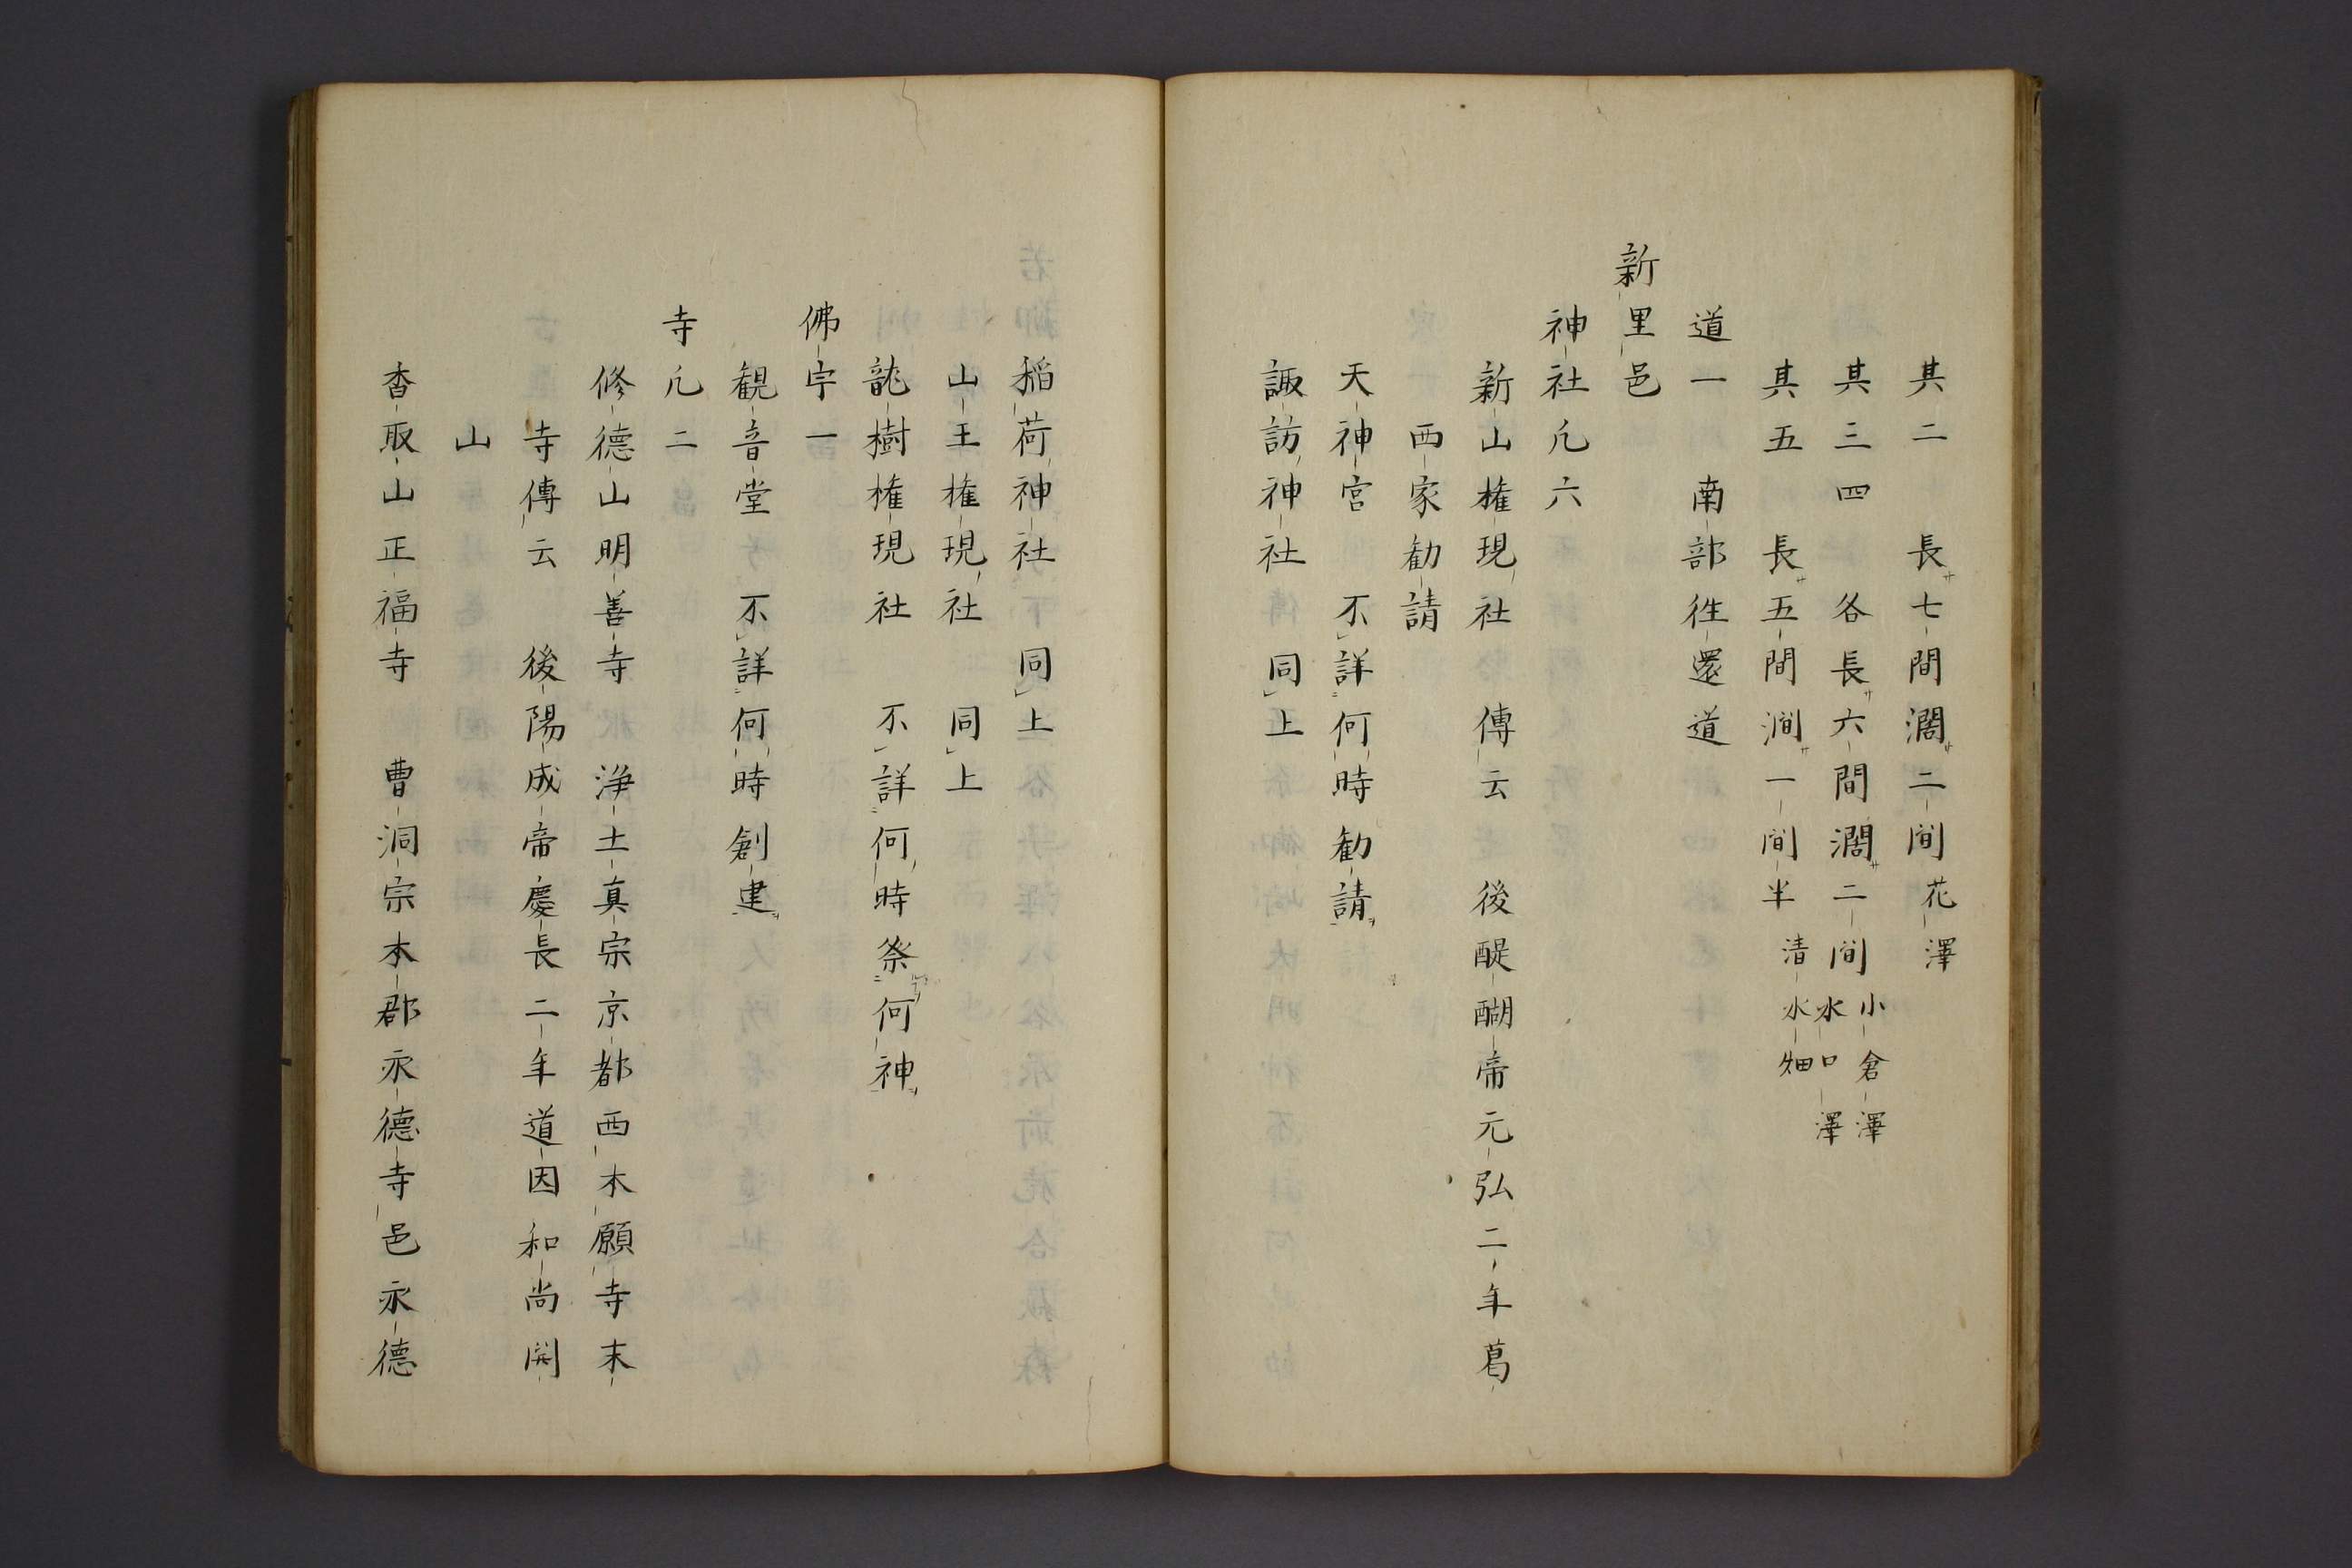 其二　長七間濶二間 花澤
其三四　各長六間濶二間 小倉澤 水口澤
其五　長五間澗一間半 清水畑
道一　南部徃還道
新里邑
神社凢六
新山権現社　傳云　後醍醐帝元弘二年葛
西家勧請
天神宮　不詳何時勧請
諏訪神社　同上
稲荷神社　同上
山王権現社　同上
龍樹権現社　不詳何時祭何神
佛宇一
観音堂　不詳何時創建
寺凢二
修徳山明善寺　浄土真宗京都西本願寺末
寺傳云　後陽成帝慶長二年道因和尚開
山
香取山正福寺　曹洞宗本郡永徳寺邑永徳